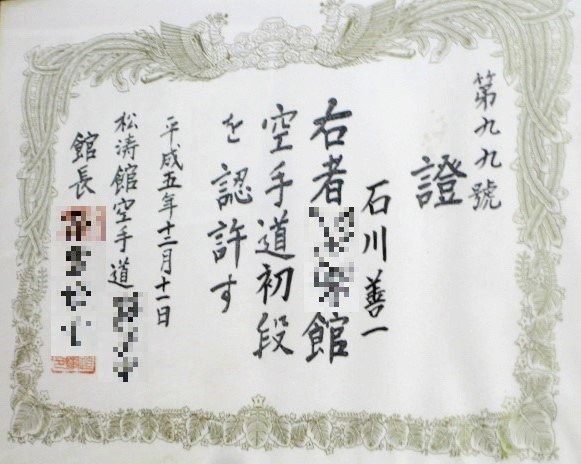 第九九號
證
石川善一
右者館
空手道初段
を認許す
平成五年十二月十一日
松涛館空手道
館長